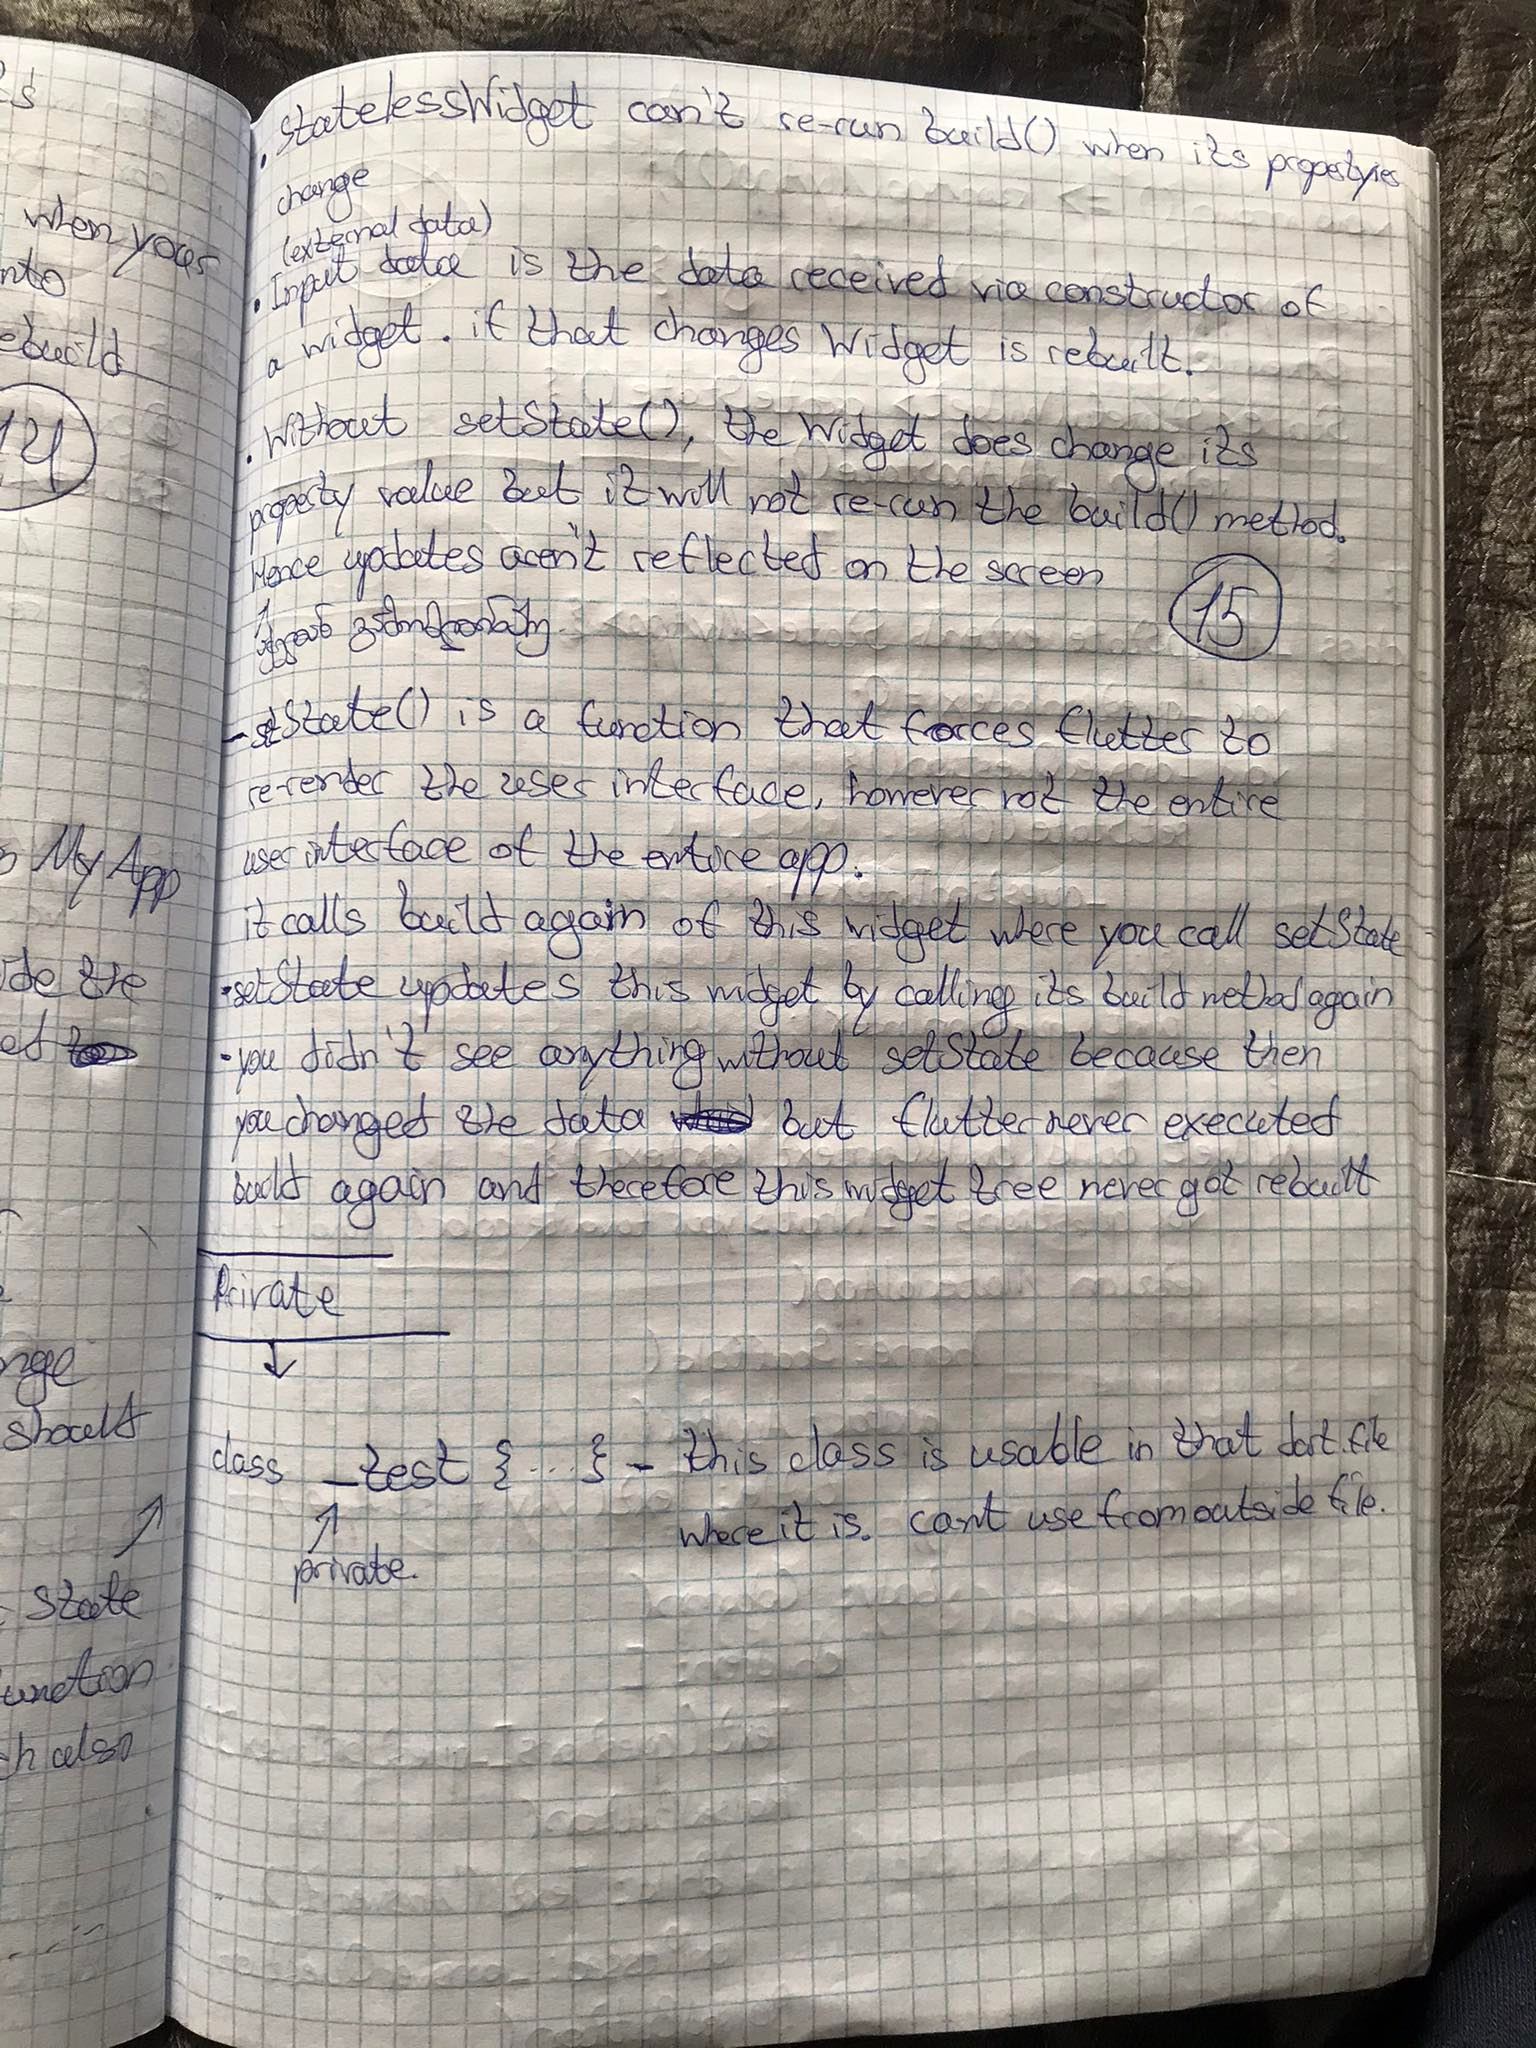 ts
when your
nto
ebuild
14
MyApp
ide the
ed
nge
should
state
function
ch also
. StatelessWidget can't re-run build() when its propertyies
change
(external data)
. Input data is the data received via constructor of
a widget. if that changes Widget is rebuilt.
. Without setState(), the Widget does change its
property value but it will not re-run the build() method.
Hence updates aren't reflected on the screen
15
- setState() is a function that forces flutter to
re-render the user interface, however not the entire
user interface of the entire app.
it calls build again of this widget where you call setState
. setState updates this widget by calling its build method again
- you didn't see anything without setState because then
you changed the data but flutter never executed
build again and therefore this widget tree never got rebuilt
Private
class _test {...} - this class is usable in that dart.file
where it is. can't use from outside file.
private.